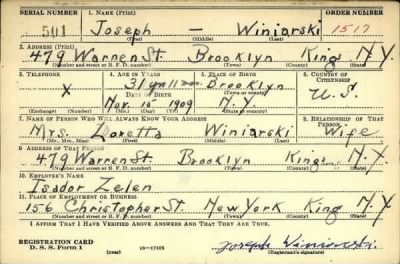 SERIAL NUMBER 1. NAME (Print) ORDER NUMBER
501 Joseph — Winiarski 1517
(First) (Middle) (Last)
2. ADDRESS (Print)
479 Warren St. Brooklyn King N.Y.
(Number and street or R. F. D. number) (Town) (County) (State)
3. TELEPHONE 4. AGE IN YEARS 5. PLACE OF BIRTH 6. COUNTRY OF CITIZENSHIP
X 31 Brooklyn
DATE OF BIRTH
Nov. 15 1909 N.Y. U.S.
(Exchange) (Number) (Mo.) (Day) (Yr.) (State or country)
7. NAME OF PERSON WHO WILL ALWAYS KNOW YOUR ADDRESS 8. RELATIONSHIP OF THAT PERSON
Mrs. Loretta Winiarski Wife
(Mr., Mrs., Miss) (First) (Middle) (Last)
9. ADDRESS OF THAT PERSON
479 Warren St. Brooklyn King N.Y.
(Number and street or R. F. D. number) (Town) (County) (State)
10. EMPLOYER'S NAME
Isador Zelen
11. PLACE OF EMPLOYMENT OR BUSINESS
156 Christopher St. New York King N.Y.
(Number and street or R. F. D. number) (Town) (County) (State)
I AFFIRM THAT I HAVE VERIFIED ABOVE ANSWERS AND THAT THEY ARE TRUE.
REGISTRATION CARD
D. S. S. Form 1 (over) 16—17105 Joseph Winiarski
(Registrant's signature)